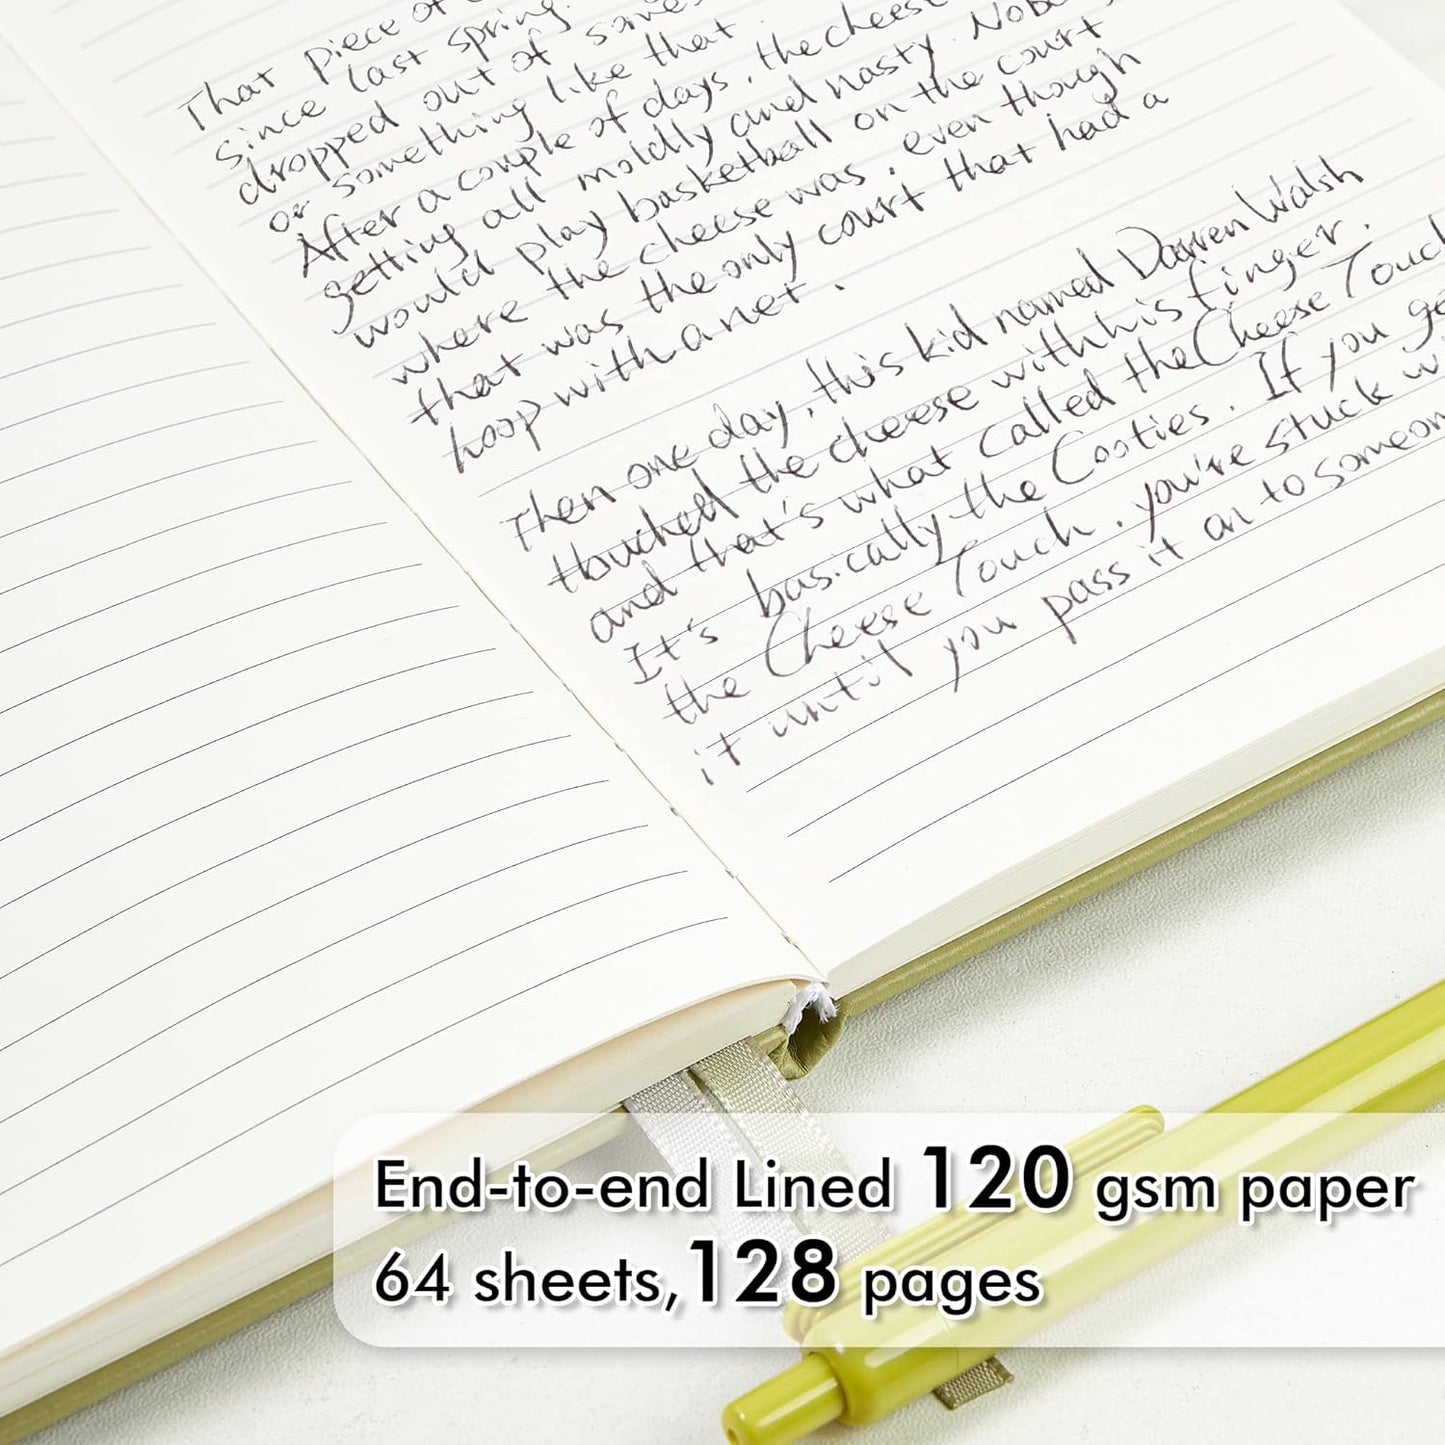 That piece of
since last spring.
dropped out of
or something like that.
After a couple of days, the cheese
getting all moldly and nasty.
would play basketball on the court
where the cheese was, even though
that was the only court that had a
hoop with a net.
Then one day, this kid named Darren Walsh
thouched the cheese with his finger.
and that's what called the Cheese Touch
It's basically the Cooties. If you
the Cheese Touch, you're stuck
it until you pass it on to
End-to-end Lined 120 gsm paper
64 sheets,128 pages